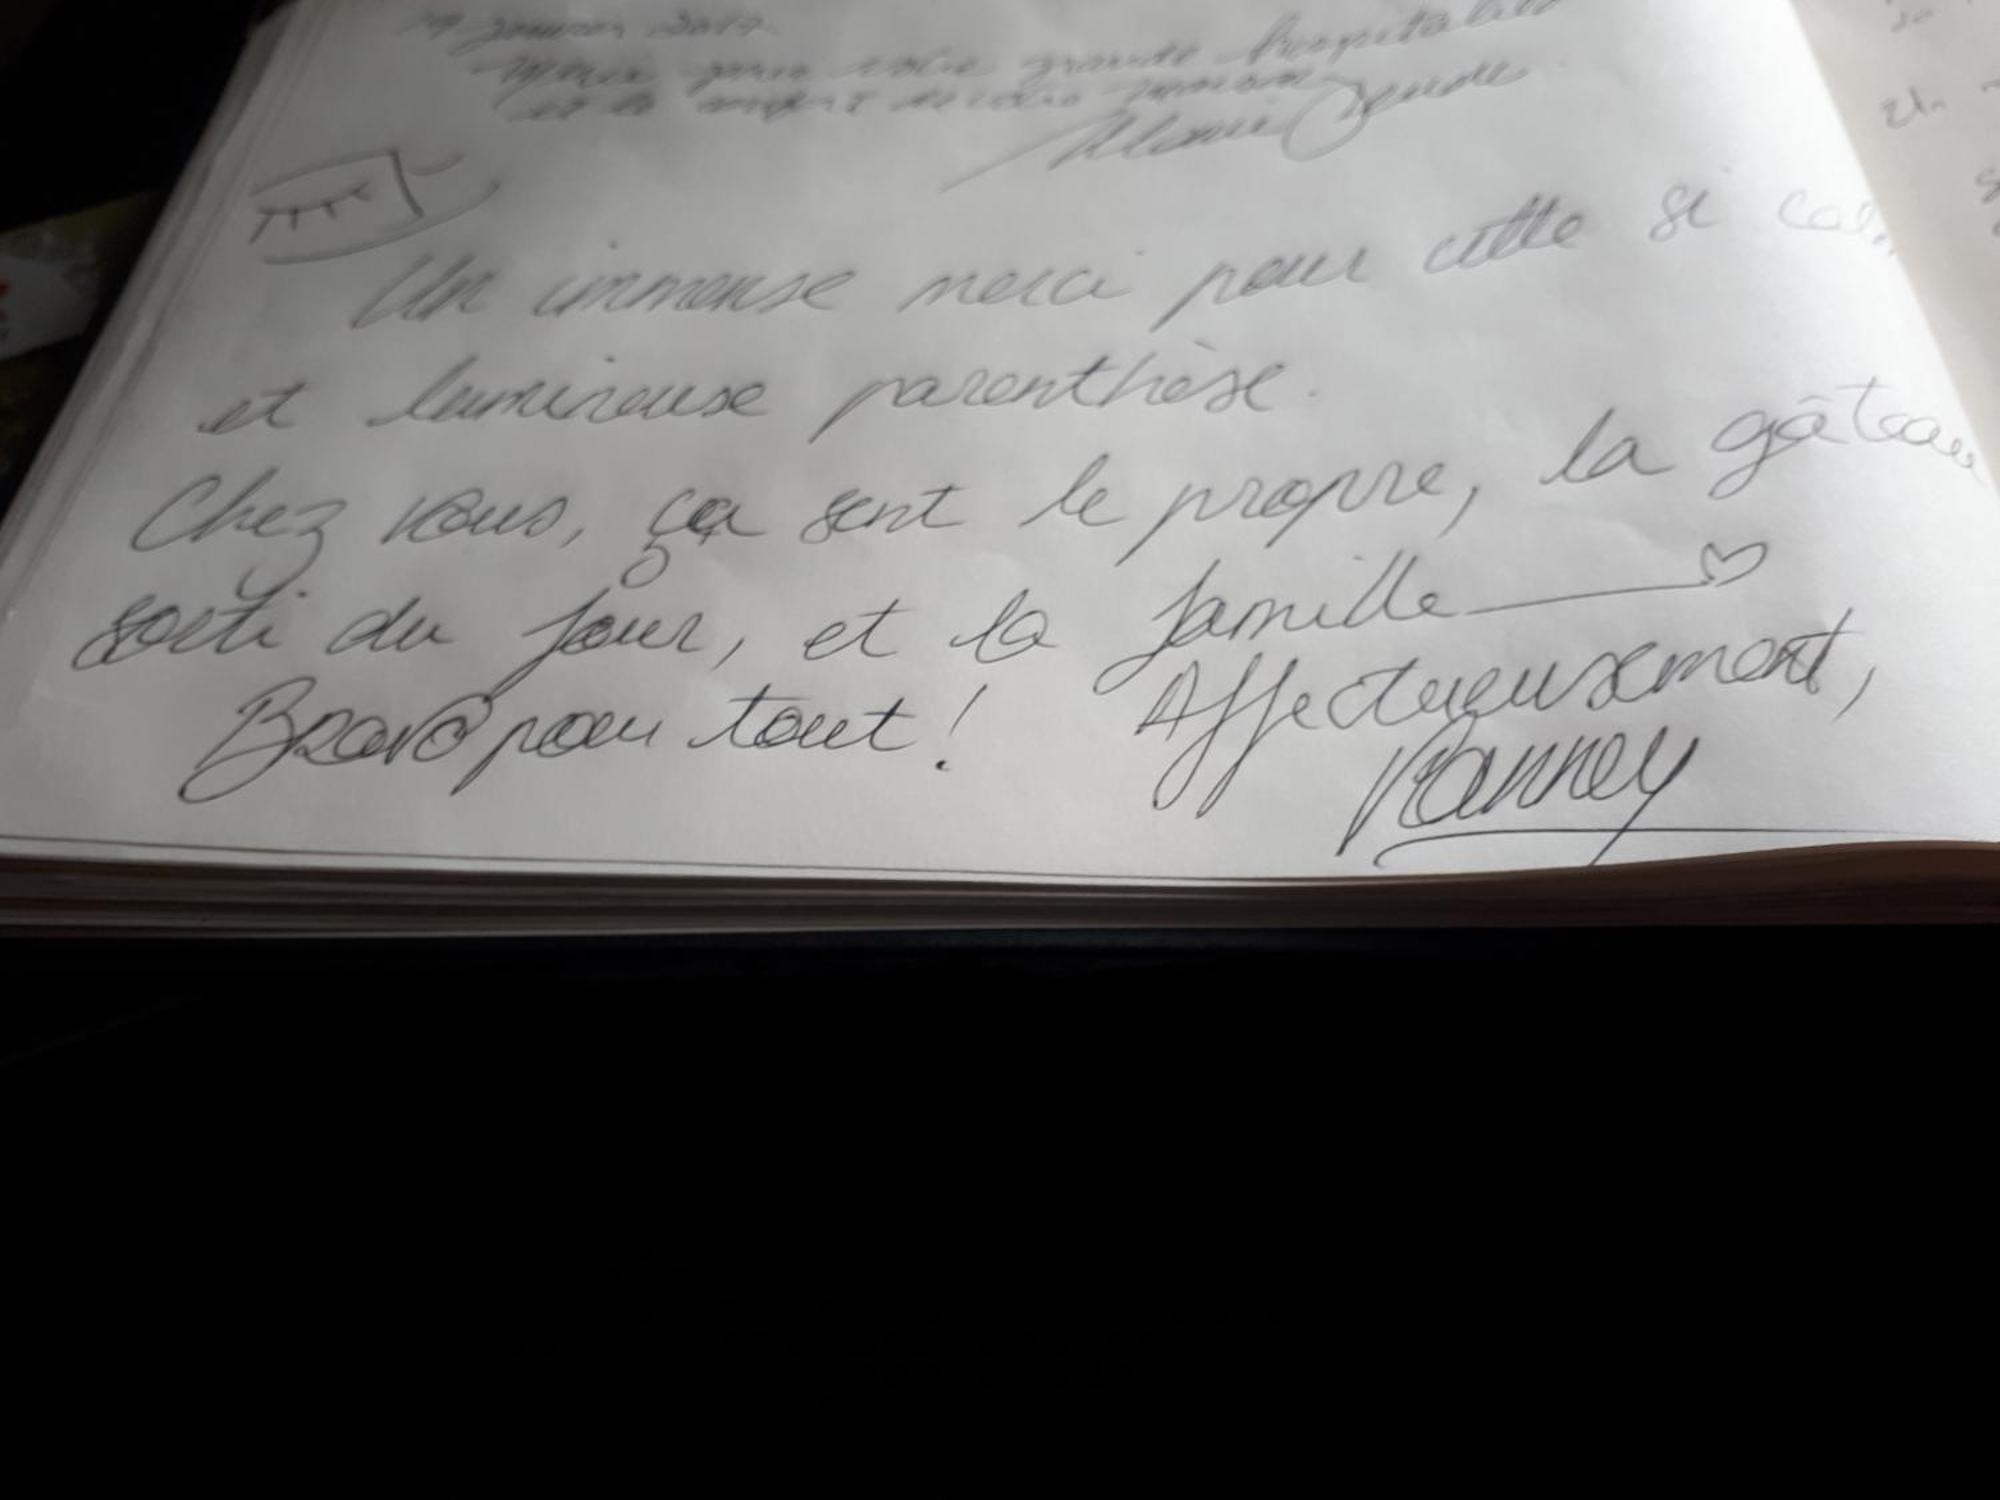 janvier 2017
Merci pour votre grande hospitalité
et le confort de votre maison
Marie
Un immense merci pour cette si
et lumineuse parenthèse.
Chez vous, ça sent le propre, la gâteau
sorti du four, et la famille
Bravo pour tout ! Affectueusement,
Un